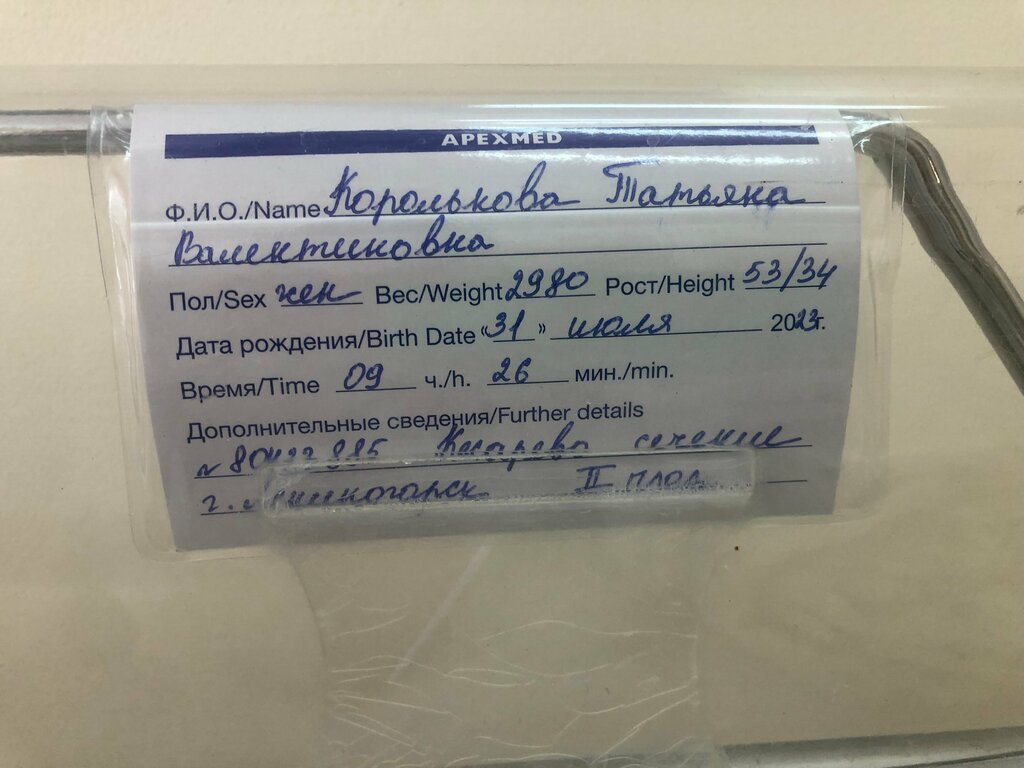 APEXMED
Ф.И.О./Name Королькова Татьяна
Валентиновна
Пол/Sex жен Вес/Weight 2980 Рост/Height 53/34
Дата рождения/Birth Date «31» июля 2023г.
Время/Time 09 ч./h. 26 мин./min.
Дополнительные сведения/Further details
Кесарево сечение
г. II плод